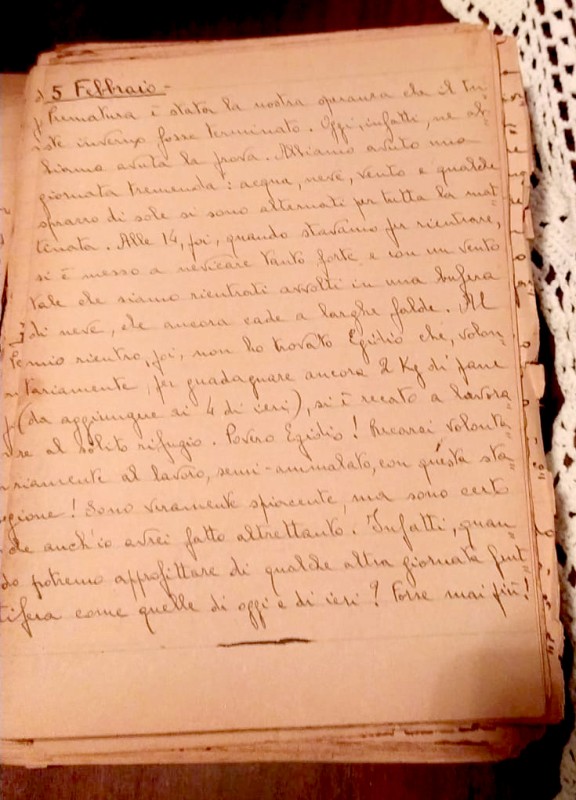 5 Febbraio -
Prematura è stata la nostra speranza che il tri-
ste inverno fosse terminato. Oggi, infatti, ne ab-
biamo avuta la prova. Abbiamo avuto una
giornata tremenda: acqua, neve, vento e qualche
sprazzo di sole si sono alternati per tutta la mat=
tinata. Alle 14, poi, quando stavamo per rientrare,
si è messo a nevicare tanto forte e con un vento
tale che siamo rientrati avvolti in una bufera
di neve, che ancora cade a larghe falde. Al
mio rientro, poi, non ho trovato Egidio che, volon-
tariamente, per guadagnare ancora 2 Kg di pane
(da aggiungere ai 4 di ieri), si è recato a lavora=
re al solito rifugio. Povero Egidio! Recarsi volonta=
riamente al lavoro, semi-ammalato, con questa sta=
gione! Sono veramente spiacente, ma sono certo
che anch'io avrei fatto altrettanto. Infatti, quan=
do potremo approfittare di qualche altra giornata frut=
tifera come quelle di oggi e di ieri? Forse mai più!